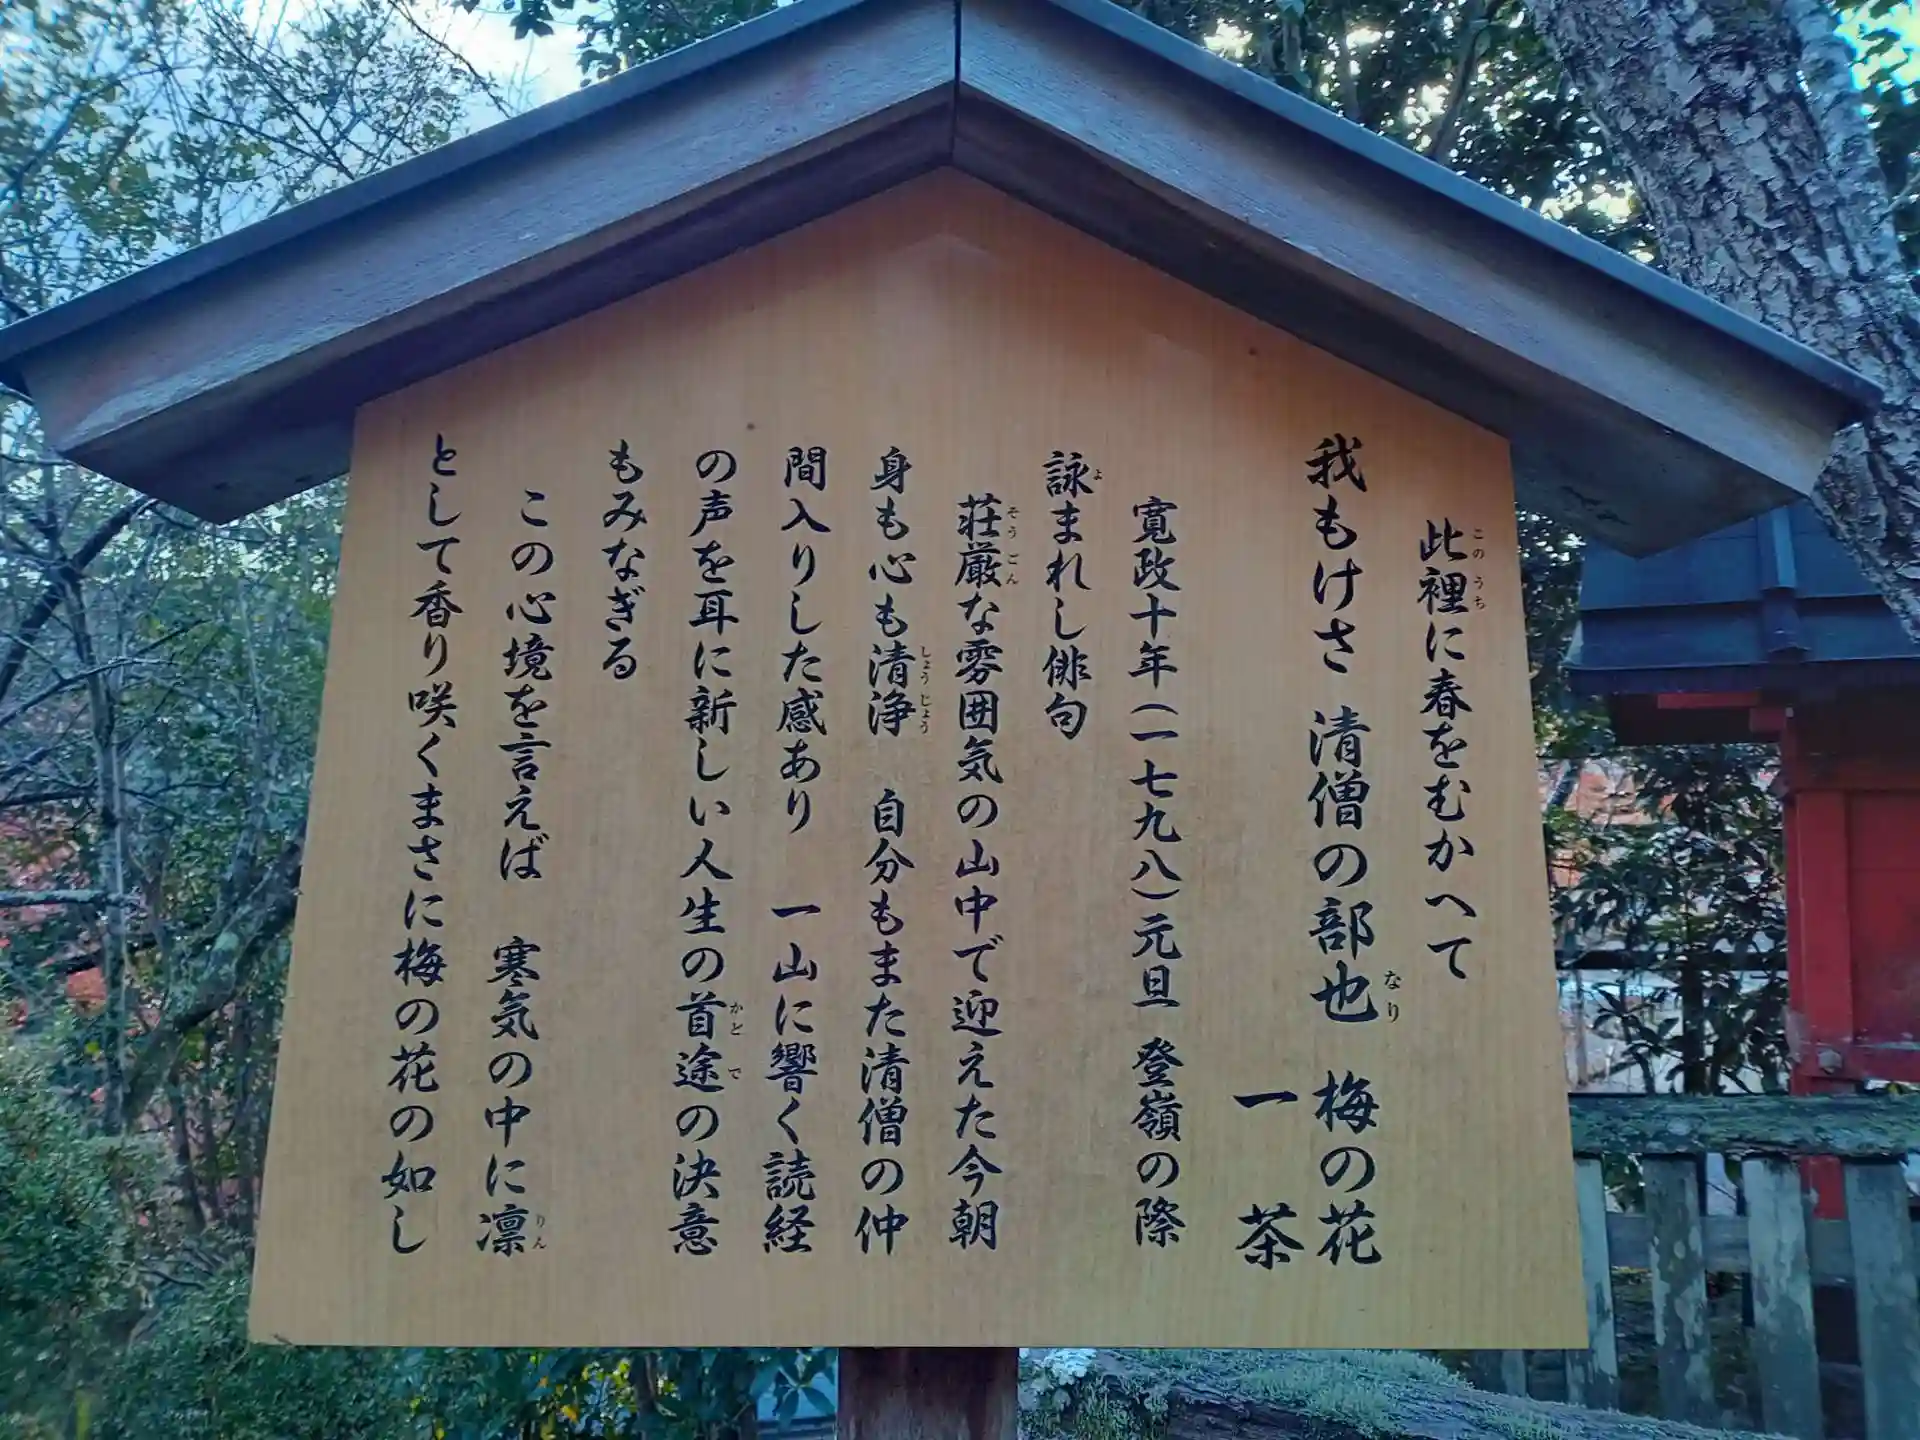 此裡に春をむかへて
我もけさ 清僧の部也 梅の花
一 茶
寛政十年(一七九八)元旦 登嶺の際
詠まれし俳句
荘厳な雰囲気の山中で迎えた今朝
身も心も清浄 自分もまた清僧の仲
間入りした感あり 一山に響く読経
の声を耳に新しい人生の首途の決意
もみなぎる
この心境を言えば 寒気の中に凛
として香り咲くまさに梅の花の如し